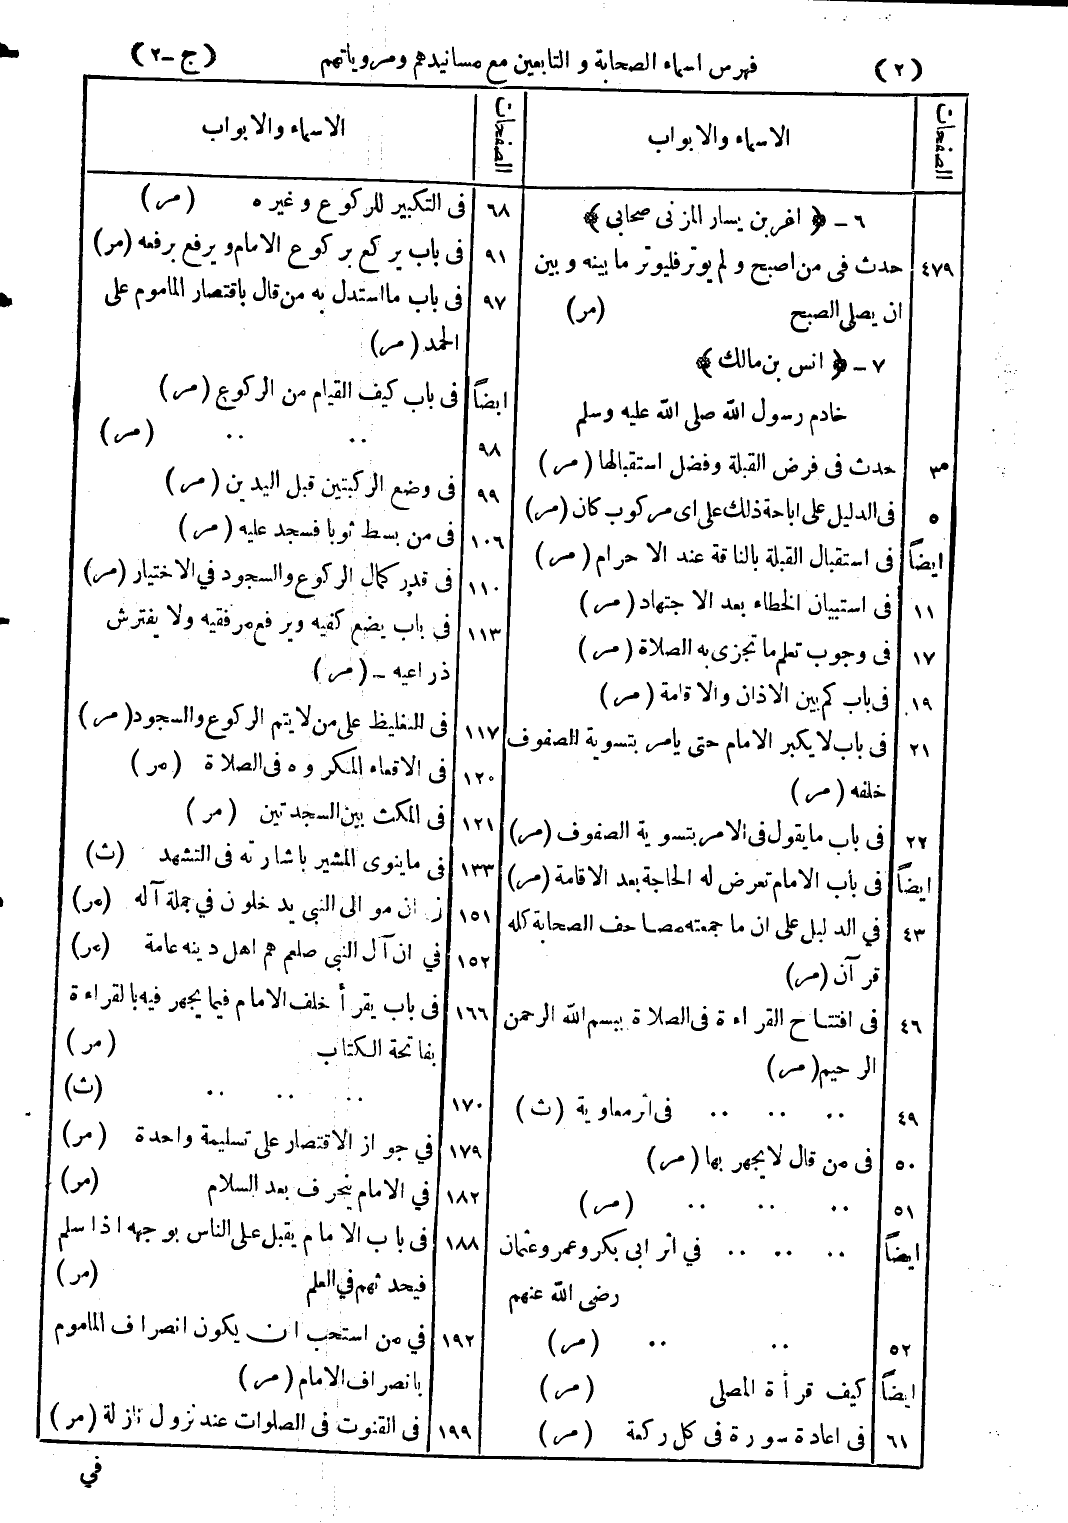 (٢) فهرس اسماء الصحابة و التابعين مع مسانيدهم ومروياتهم (ج-٢)
الصفحات الاسماء والابواب
٦ - ﴿ اغر بن يسار المزنى صحابى ﴾
٤٧٩ حدث فى من اصبح و لم يوتر فليوتر ما بينه و بين
ان يصلى الصبح (مر)
٧ - ﴿ انس بن مالك ﴾
خادم رسول الله صلى الله عليه وسلم
٣ حدث فى فرض القبلة وفضل استقبالها (مر)
٥ فى الدليل على اباحة ذلك على اى مركوب كان (مر)
ايضاً فى استقبال القبلة بالناقة عند الاحرام (مر)
١١ فى استبيان الخطاء بعد الاجتهاد (مر)
١٧ فى وجوب تعلم ما تجزى به الصلاة (مر)
١٩ فى باب كم بين الاذان والاقامة (مر)
٢١ فى باب لا يكبر الامام حتى يامر بتسوية الصفوف
خلفه (مر)
٢٢ فى باب ما يقول فى الامر بتسوية الصفوف (مر)
ايضاً فى باب الامام تعرض له الحاجة بعد الاقامة (مر)
٤٣ في الدليل على ان ما جمعته مصاحف الصحابة كله
قرآن (مر)
٤٦ فى افتتاح القراءة فى الصلاة ببسم الله الرحمن
الرحيم (مر)
٤٩ .. .. .. فى اثر معاوية (ث)
٥٠ فى من قال لا يجهر بها (مر)
٥١ .. .. .. (مر)
ايضاً .. .. .. في اثر ابى بكر وعمر وعثمان
رضى الله عنهم
٥٢ .. .. (مر)
ايضاً كيف قرأة المصلى (مر)
٦١ فى اعادة سورة فى كل ركعة (مر)
الصفحات الاسماء والابواب
٦٨ فى التكبير للركوع وغيره (مر)
٩١ فى باب يركع بركوع الامام ويرفع برفعه (مر)
٩٧ فى باب ما استدل به من قال باقتصار الماموم على
الحمد (مر)
ايضاً فى باب كيف القيام من الركوع (مر)
٩٨ .. .. (مر)
٩٩ فى وضع الركبتين قبل اليدين (مر)
١٠٦ فى من بسط ثوبا فسجد عليه (مر)
١١٠ فى قدر كمال الركوع والسجود في الاختيار (مر)
١١٣ فى باب يضع كفيه ويرفع مرفقيه ولا يفترش
ذراعيه - (مر)
١١٧ فى التغليظ على من لا يتم الركوع والسجود (مر)
١٢٠ فى الاقعاء المكروه فى الصلاة (مر)
١٢١ فى المكث بين السجدتين (مر)
١٣٣ فى ما ينوى المشير باشارته فى التشهد (ث)
١٥١ ان موالى النبى يدخلون في جملة آله (مر)
١٥٢ في ان آل النبى صلعم هم اهل دينه عامة (مر)
١٦٦ فى باب يقرأ خلف الامام فيما يجهر فيه بالقراءة
بفاتحة الكتاب (مر)
١٧٠ .. .. .. (ث)
١٧٩ في جواز الاقتصار على تسليمة واحدة (مر)
١٨٢ في الامام ينحرف بعد السلام (مر)
١٨٨ فى باب الامام يقبل على الناس بوجهه اذا سلم
فيحدثهم في العلم (مر)
١٩٢ في من استحب ان يكون انصراف الماموم
بانصراف الامام (مر)
١٩٩ فى القنوت فى الصلوات عند نزول نازلة (مر)
في